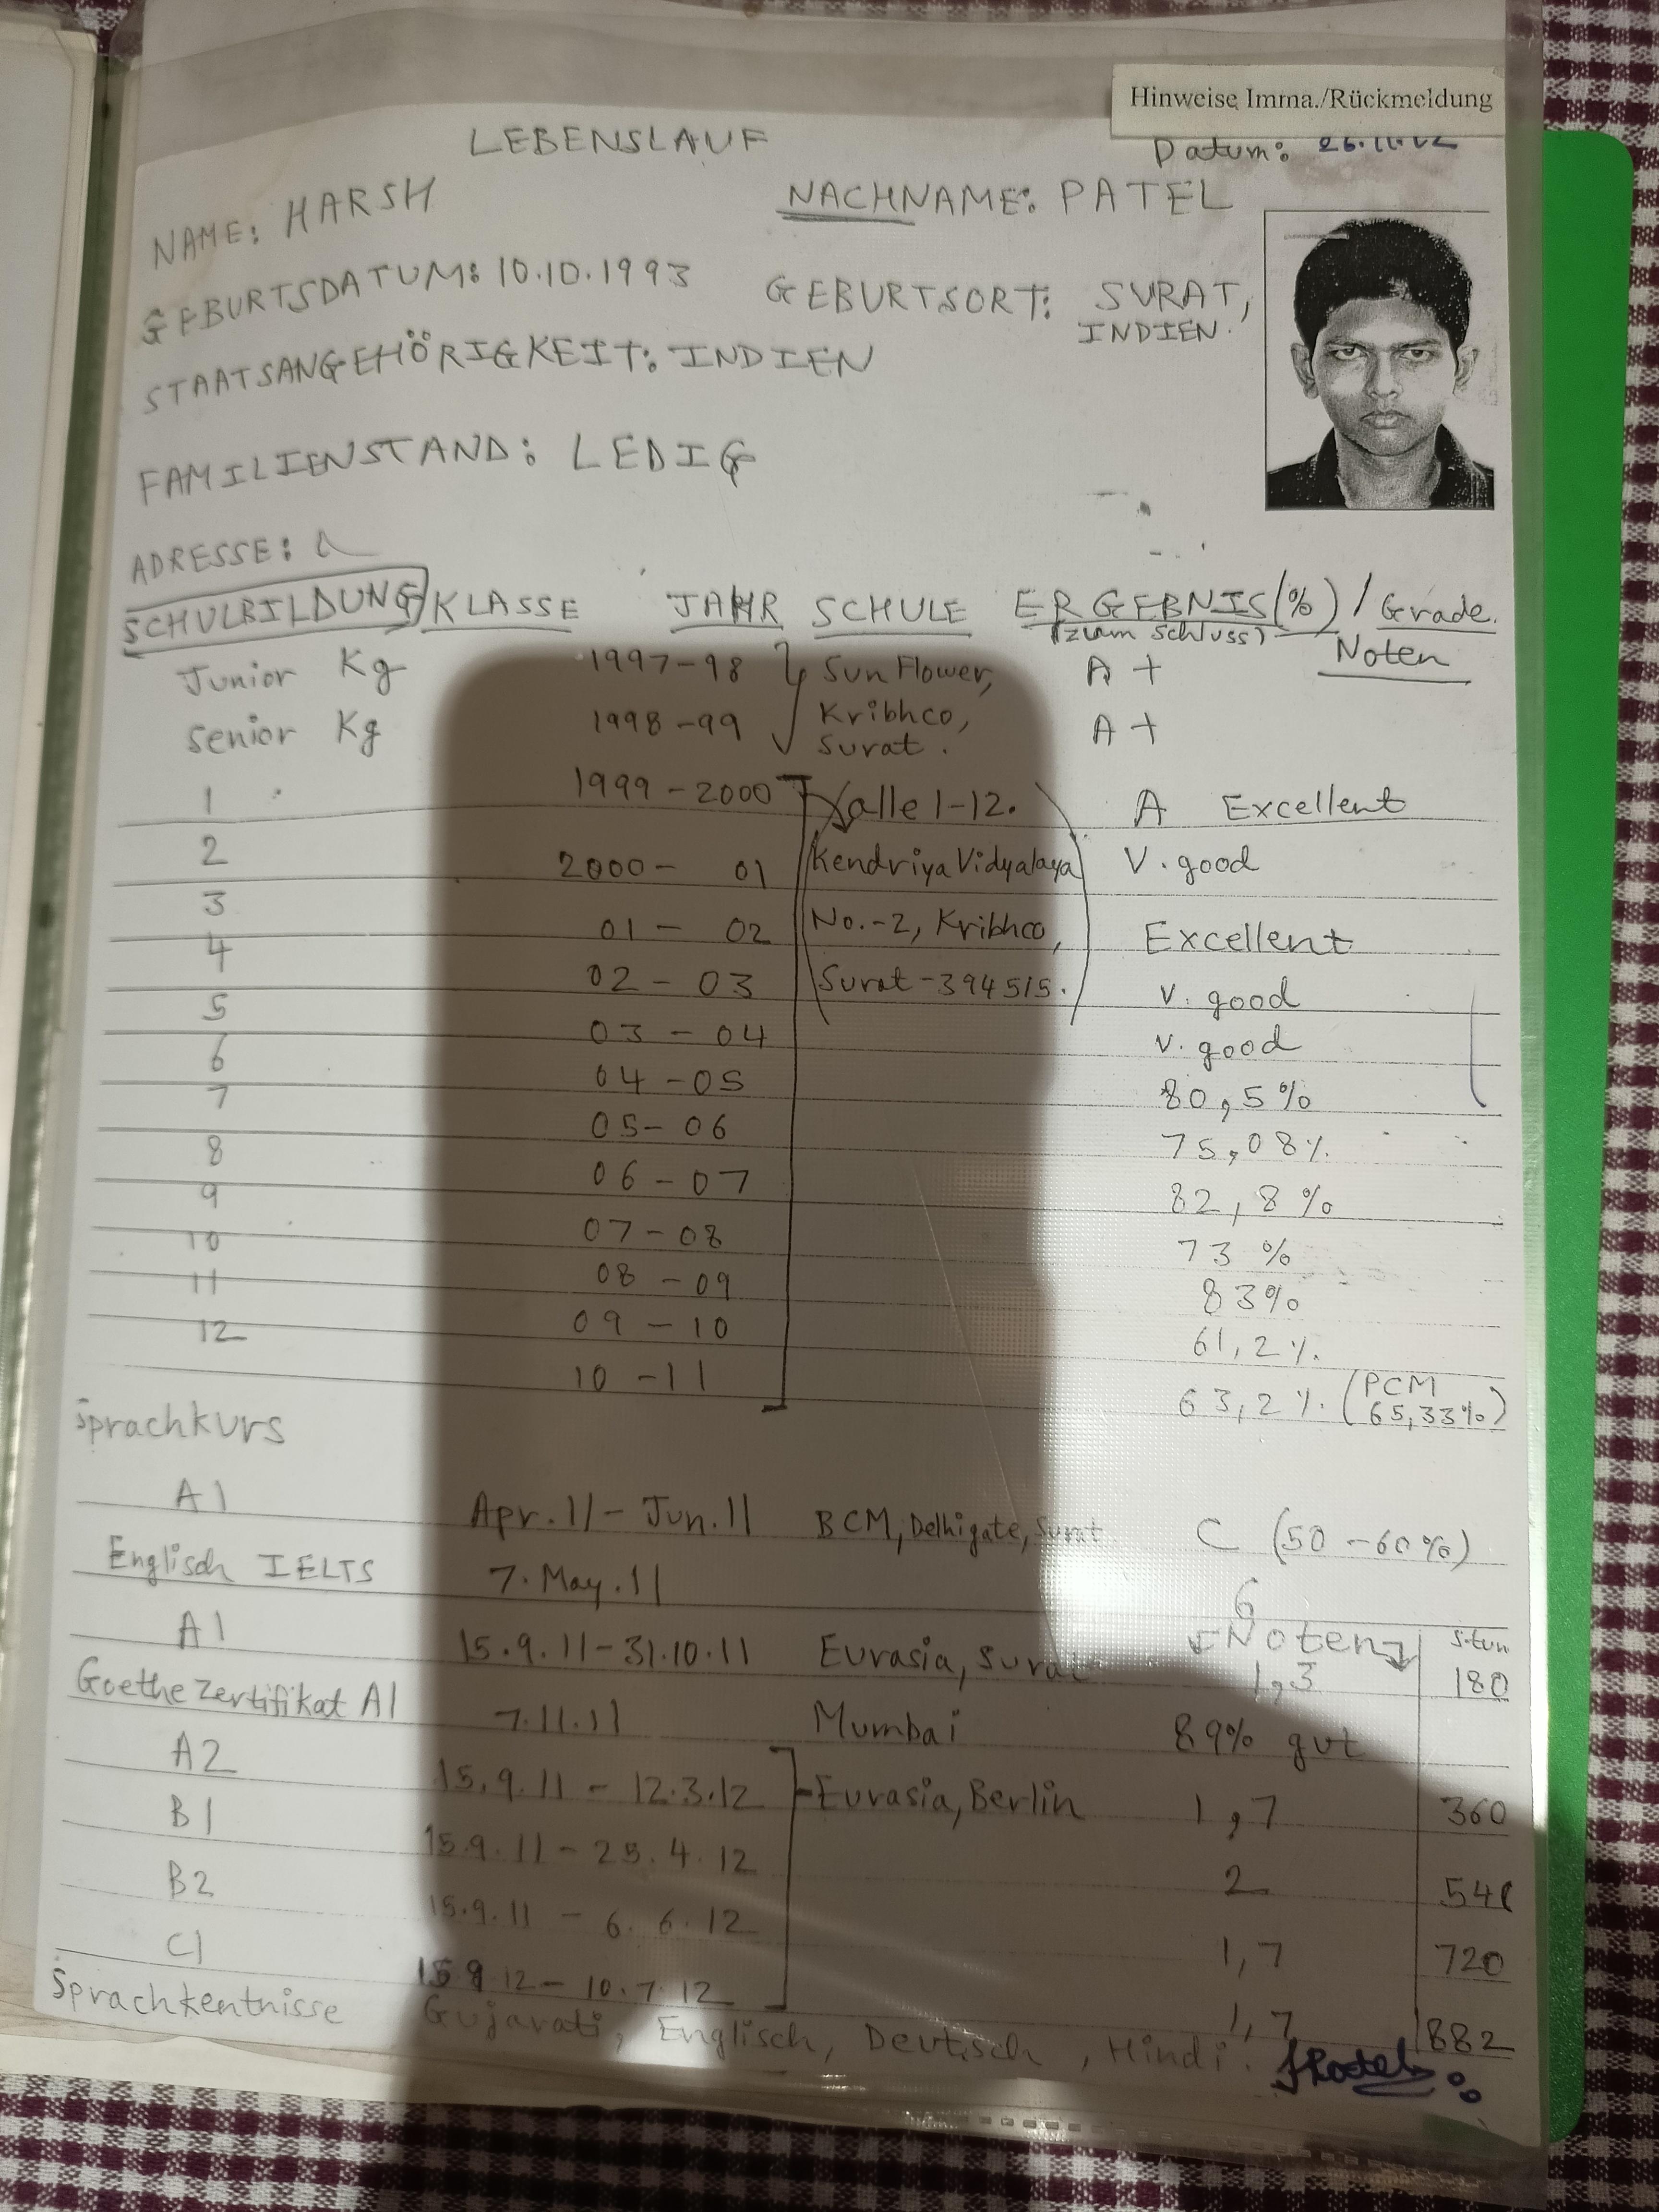 Hinweise Imma./Rückmeldung
LEBENSLAUF
Datum:
NAME: HARSH NACHNAME: PATEL
GEBURTSDATUM: 10.10.1993 GEBURTSORT: SURAT,
INDIEN.
STAATSANGEHÖRIGKEIT: INDIEN
FAMILIENSTAND: LEDIG
ADRESSE:
SCHULBILDUNG/KLASSE JAHR SCHULE ERGEBNIS(%) / Grade.
(zum Schluss) Noten
Junior Kg 1997-98 Sun Flower, A+
Senior Kg 1998-99 Kribhco, A+
Surat.
1 1999-2000 alle 1-12. A Excellent
2 2000- 01 Kendriya Vidyalaya V. good
3 01- 02 No.-2, Kribhco, Excellent
4 02- 03 Surat-394515. V. good
5 03-04 V. good
6 04-05 80,5%
7 05-06 75,08%
8 06-07 82,8%
9 07-08 73%
10 08-09 83%
11 09-10 61,2%
12 10-11 63,2% (PCM 65,33%)
Sprachkurs
A1 Apr.11-Jun.11 BCM, Delhigate, Surat C (50-60%)
Englisch IELTS 7.May.11 6
Noten Stun
A1 15.9.11-31.10.11 Eurasia, Surat 1,3 180
Goethe Zertifikat A1 7.11.11 Mumbai 89% gut
A2 15.9.11-12.3.12 Eurasia, Berlin 1,7 360
B1 15.9.11-25.4.12 2
B2 15.9.11-6.6.12 1,7 720
C1 10.7.12 1,7 882
Sprachkentnisse Gujarati, Englisch, Deutsch, Hindi.